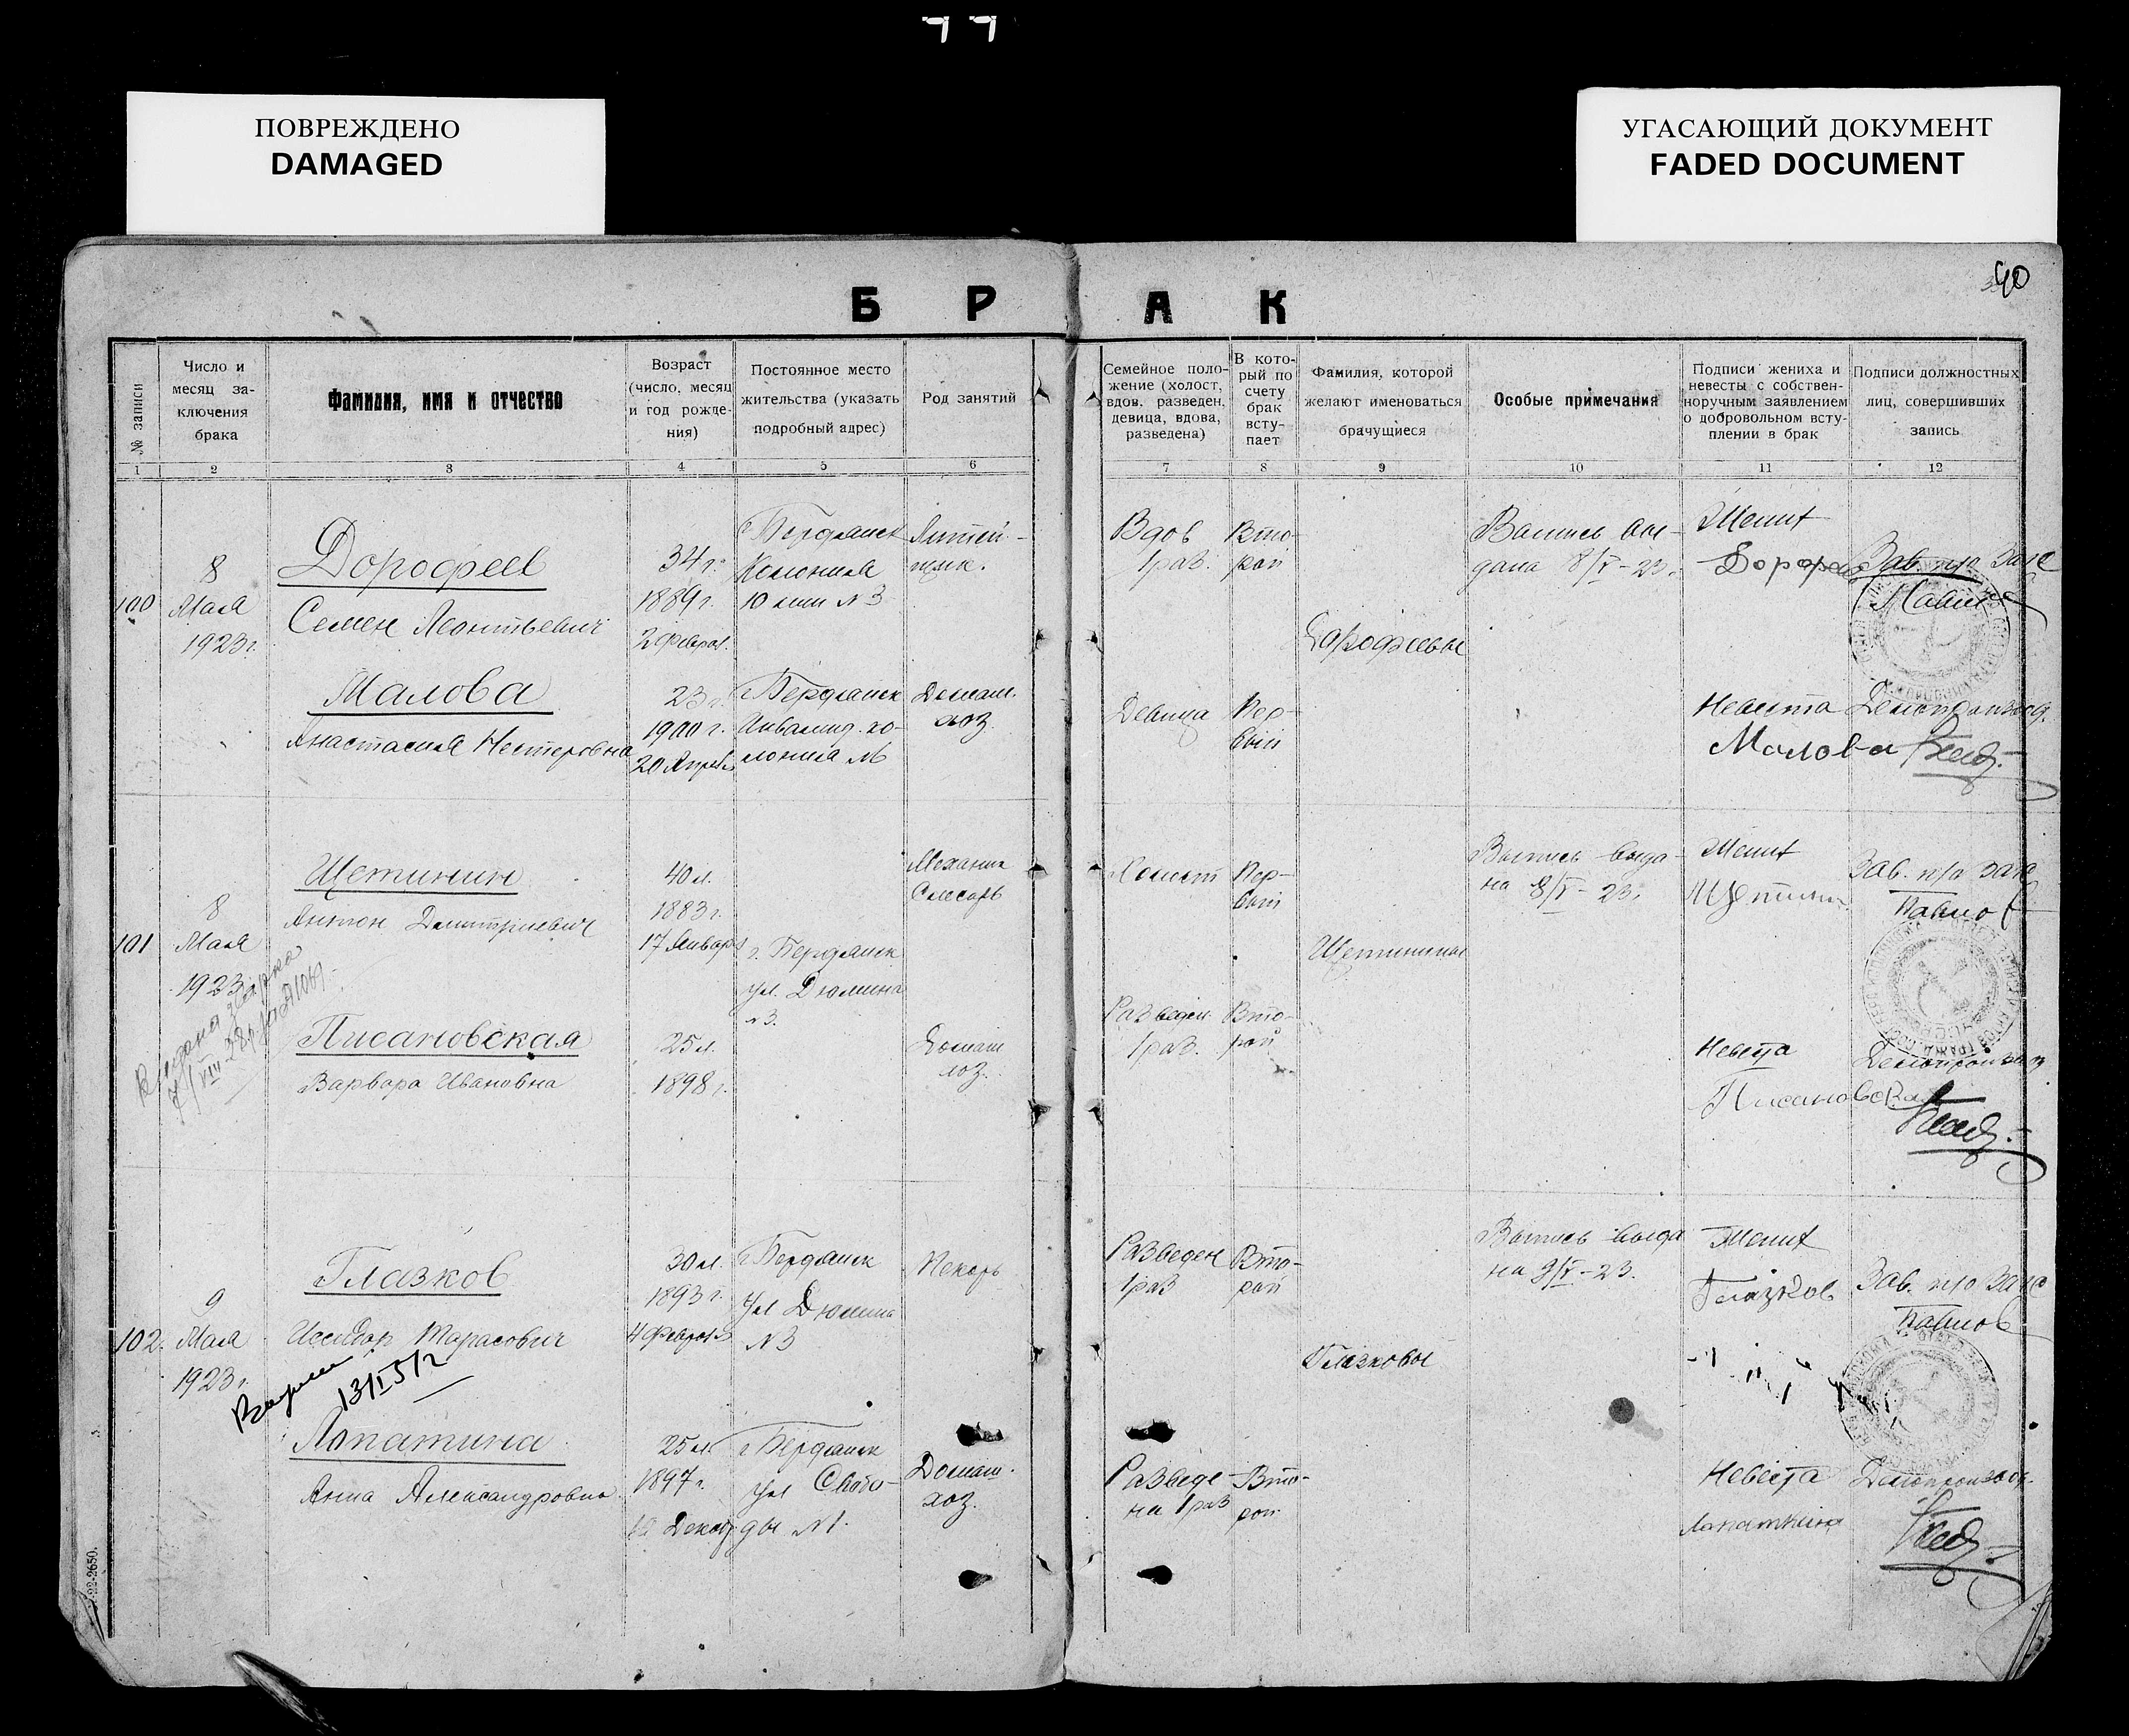 ПОВРЕЖДЕНО
DAMAGED
УГАСАЮЩИЙ ДОКУМЕНТ
FADED DOCUMENT
40
Б Р А К
№ записи
Число и
месяц за-
ключения
брака
Фамилия, имя и отчество
Возраст
(число, месяц
и год рожде-
ния)
Постоянное место
жительства (указать
подробный адрес)
Род занятий
Семейное поло-
жение (холост,
вдов, разведен,
девица, вдова,
разведена)
В кото-
рый по
счету
брак
всту-
пает
Фамилия, которой
желают именоваться
брачущиеся
Особые примечания
Подписи жениха и
невесты с собствен-
норучным заявлением
о добровольном всту-
плении в брак
Подписи должностных
лиц, совершивших
запись
1 2 3 4 5 6 7 8 9 10 11 12
100
8
Мая
1923 г.
Дорофеев
Семен Леонтьевич
34 г.
1889 г.
2 Феврал.
г. Бердянск
Колония
10 лин №3
Литей-
щик.
Вдов
1 раз.
Вто-
рой
Дорофеевы
Выпись вы-
дана 8/V-23.
Жених
Дорофеев
Зав. п/о Загс
Павлов
Малова
Анастасия Нестеровна
23 г.
1900 г.
20 Апреля
г. Бердянск
Инвалид. ко-
лония №
Домаш.
хоз.
Девица
Пер-
вый
Невеста
Малова
Делопроизвод.
101
8
Мая
1923 г.
Щетинин
Антон Дмитриевич
40 л.
1883 г.
17 Января
г. Бердянск
ул. Дюмина
№3.
Механик
Слесарь
Холост
Пер-
вый
Щетинины
Выпись выда-
на 8/V-23.
Жених
Щетинин
Зав. п/о Загс
Павлов
Писановская
Варвара Ивановна
25 л.
1898 г.
Домаш
хоз.
Разведен.
1 раз.
Вто-
рой
Невеста
Писановская
Делопроизвод
102.
9
Мая
1923 г.
Глазков
Исидор Тарасович
13/I 5/2
30 л.
1893 г.
4 Февраля
г. Бердянск
ул Дюмина
№3
Пекарь
Разведен
1 раз
Вто-
рой
Глазковы
Выпись выда
на 9/V-23.
Жених
Глазков
Зав. п/о Загс
Павлов
Лопатина
Анна Александровна
25 л.
1897 г.
Декаб.
г. Бердянск
ул Свобо-
ды №1.
Домаш.
хоз.
Разведе-
на 1 раз
Вто-
рой
Невеста
Лопатина
Делопроизвод.
22-2650.